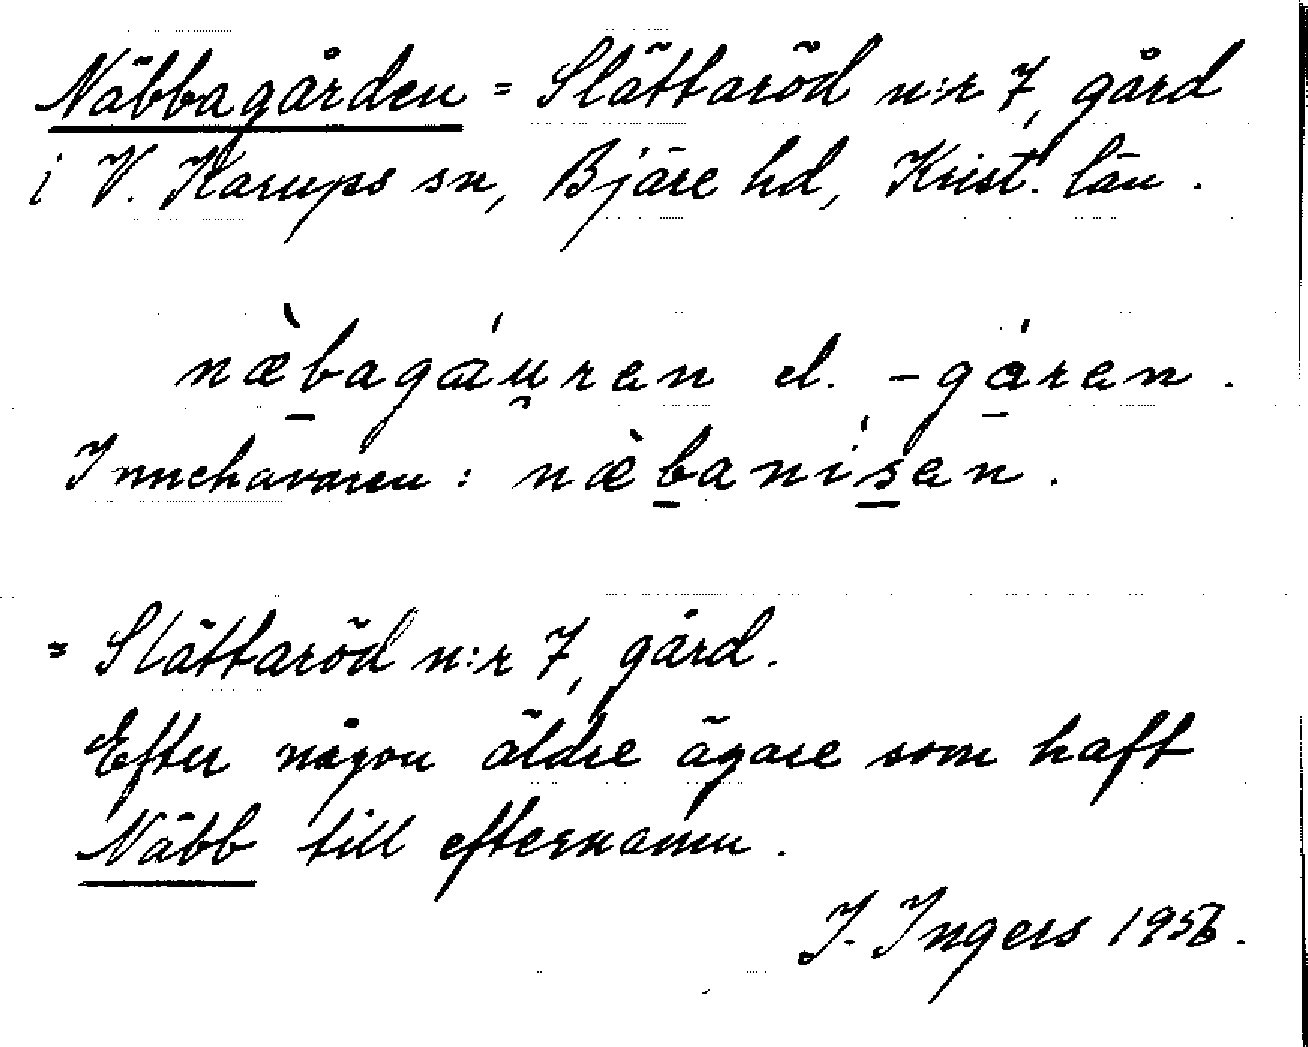 Näbbagården = Slättaröd n:r 7, gård
i V. Karups sn, Bjäre hd, Krist. län.
næ̀bagáu̯ren el. -gáren.
Innehavaren: næ̀banísen.
= Slättaröd n:r 7, gård.
Efter någon äldre ägare som haft
Näbb till efternamn.
I. Ingers